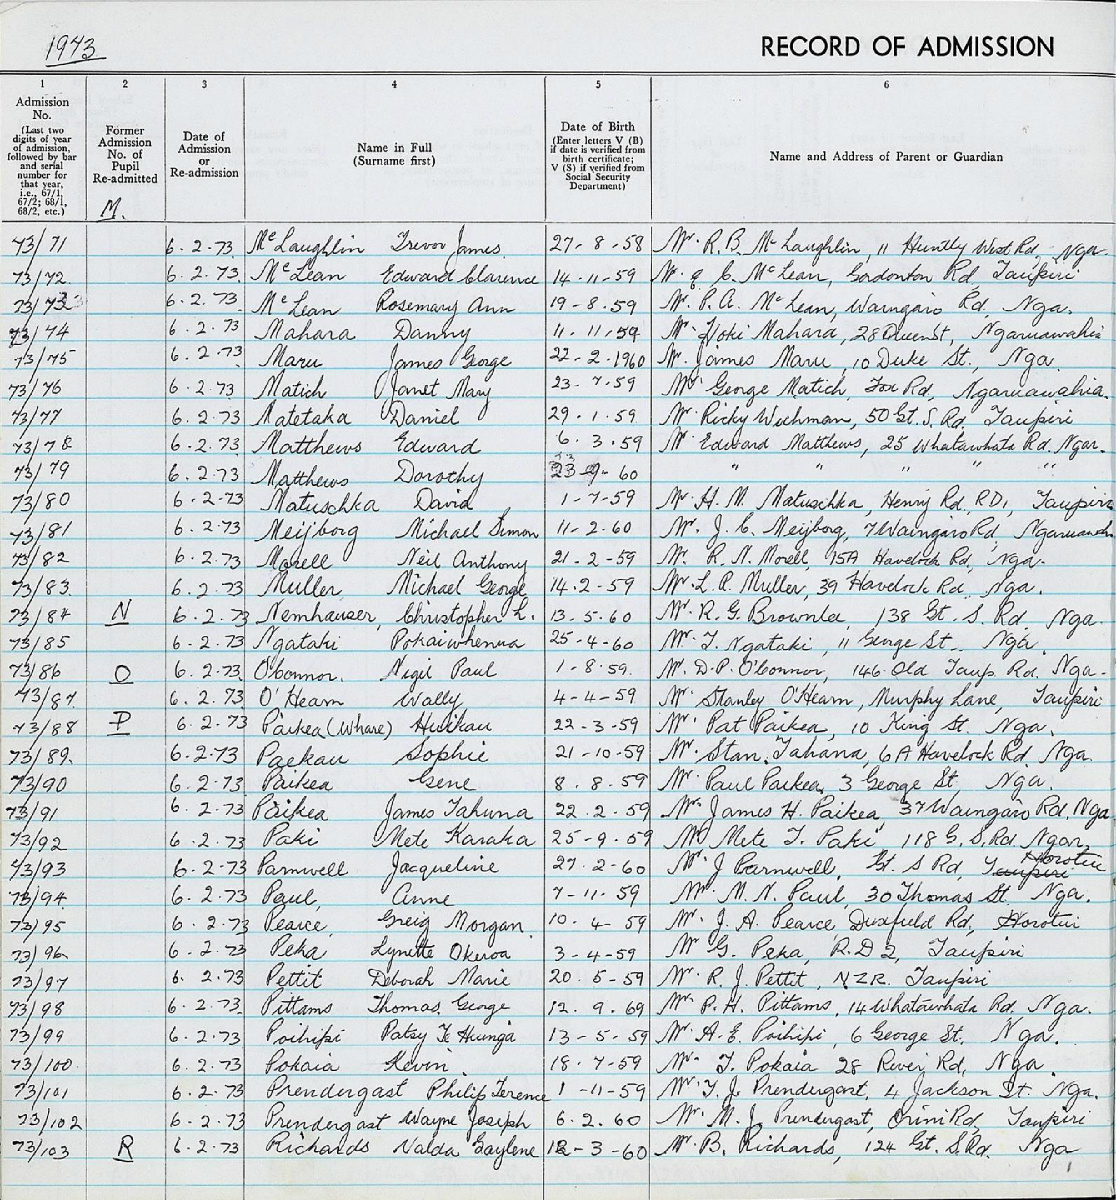 1973
RECORD OF ADMISSION
1 2 3 4 5 6
Admission No. (Last two digits of year of admission, followed by bar and serial number for that year, i.e., 67/1, 67/2; 68/1, 68/2, etc.)
Former Admission No. of Pupil Re-admitted
M.
Date of Admission or Re-admission
Name in Full (Surname first)
Date of Birth (Enter letters V (B) if date is verified from birth certificate; V (S) if verified from Social Security Department)
Name and Address of Parent or Guardian
73/71 6.2.73 McLaughlin Trevor James 27-8-58 Mr. R. B. McLaughlin, 11 Huntly West Rd, Nga.
73/72 6.2.73 McLean Edward Clarence 14-11-59 Mr. C. McLean, Gordonton Rd, Taupiri
73/73 6.2.73 McLean Rosemary Ann 19-8.59 Mr. P.A. McLean, Waingaro Rd, Nga.
73/74 6.2.73 Mahara Danny 11-11-59 Mr. Mahara, 28 Queen St, Ngaruawahia
73/75 6.2.73 Maru James George 22-2-1960 Mr. James Maru, 10 Duke St., Nga.
73/76 6.2.73 Matich Janet Mary 23-7-59 Mr George Matich, Fox Rd, Ngaruawahia.
73/77 6.2.73 Matetaka Daniel 29-1-59 Mr. Ricky Wichman, 50 Gt. S. Rd, Taupiri
73/78 6.2.73 Matthews Edward 6.3.59 Mr Edward Matthews, 25 Whatawhata Rd, Ngar.
73/79 6.2.73 Matthews Dorothy 60 " " " "
73/80 6-2-73 Matuschka David 1-7-59 Mr. H. M. Matuschka, Henry Rd, RD1, Taupiri
73/81 6.2.73 Meijborg Michael Simon 11-2-60 Mr. J. C. Meijborg, 7 Waingaro Rd, Ngaruawahia
73/82 6.2.73 Morell Neil Anthony 21-2-59 Mr. R. N. Morell, 15A Havelock Rd, Nga.
73/83 6.2.73 Muller, Michael George 14.2-59 Mr L. A. Muller, 39 Havelock Rd, Nga.
73/84 N 6.2.73 Nemhauser, Christopher L. 13.5.60 Mr. R. G. Brownlee, 138 Gt. S. Rd. Nga.
73/85 6.2.73 Ngataki Pokaiwhenua 25-4-60 Mr. T. Ngataki, 11 George St. Nga.
73/86 O 6.2.73 O'Connor. Nigil Paul 1-8-59. Mr. D. P. O'Connor, 146 Old Taup. Rd. Nga.
73/87 6.2.73 O'Hearn Wally 4-4-59 Mr Stanley O'Hearn, Murphy Lane, Taupiri
73/88 P 6.2.73 Paikea (Whare) Huikau 22-3-59 Mr. Pat Paikea, 10 King St. Nga.
73/89. 6.2.73 Paekau Sophie 21-10-59 Mr. Stan. Tahana, 6A Havelock Rd, Nga.
73/90 6.2.73 Paikea Gene 8.8.59 Mr. Paul Paikea, 3 George St. Nga.
73/91 6.2.73 Paikea James Tahuna 22.2-59 Mr. James H. Paikea, 37 Waingaro Rd, Nga
73/92 6.2.73 Paki Mete Karaka 25-9.59 Mr Mete T. Paki 118 G. S. Rd Ngar.
73/93 6.2.73 Parnwell Jacqueline 27-2-60 Mr J Parnwell, Gt. S Rd, Taupiri Horotiu
73/94 6.2.73 Paul, Anne 7-11-59 Mr. M. N. Paul, 30 Thomas St Nga.
73/95 6.2.73 Pearce, Greig Morgan. 10.4-59 Mr. J. A. Pearce, Duxfield Rd, Horotiu
73/96 6.2.73 Peka Lynette Okeroa 3-4-59 Mr G. Peka, R.D 2, Taupiri
73/97 6.2.73 Pettit Deborah Marie 20.5-59 Mr. R. J. Pettit, NZR. Taupiri
73/98 6.2.73. Pittams Thomas George 12.9.69 Mr. P. H. Pittams, 14 Whatawhata Rd. Nga.
73/99 6.2.73 Poihipi Patsy Te Huinga 13-5-59 Mr. A. E. Poihipi, 6 George St. Nga.
73/100 6.2.73 Pokaia Kevin 18-7-59 Mr. T. Pokaia 28 River Rd, Nga.
73/101 6.2.73 Prendergast Philip Terence 1-11-59 Mr. T. J. Prendergast, 4 Jackson St. Nga.
73/102 6.2.73 Prendergast Wayne Joseph 6.2.60 Mr. M. J. Prendergast, Orini Rd, Taupiri
73/103 R 6.2.73 Richards Nalda Gaylene 18-3-60 Mr. B. Richards, 124 Gt. S. Rd. Nga